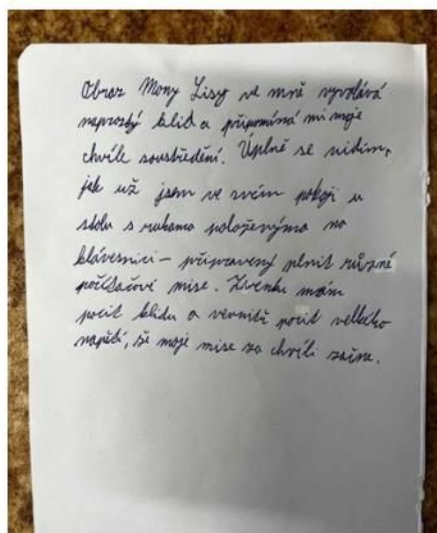 Obraz Mony Lisy ve mně vyvolává
naprostý klid a připomíná mi moje
chvíle soustředění. Úplně se vidím,
jak už jsem ve svém pokoji u
stolu s rukama položenýma na
klávesnici – připravený plnit různé
počítačové mise. Zvenku mám
pocit klidu a vevnitř pocit velkého
napětí, že moje mise za chvíli začne.